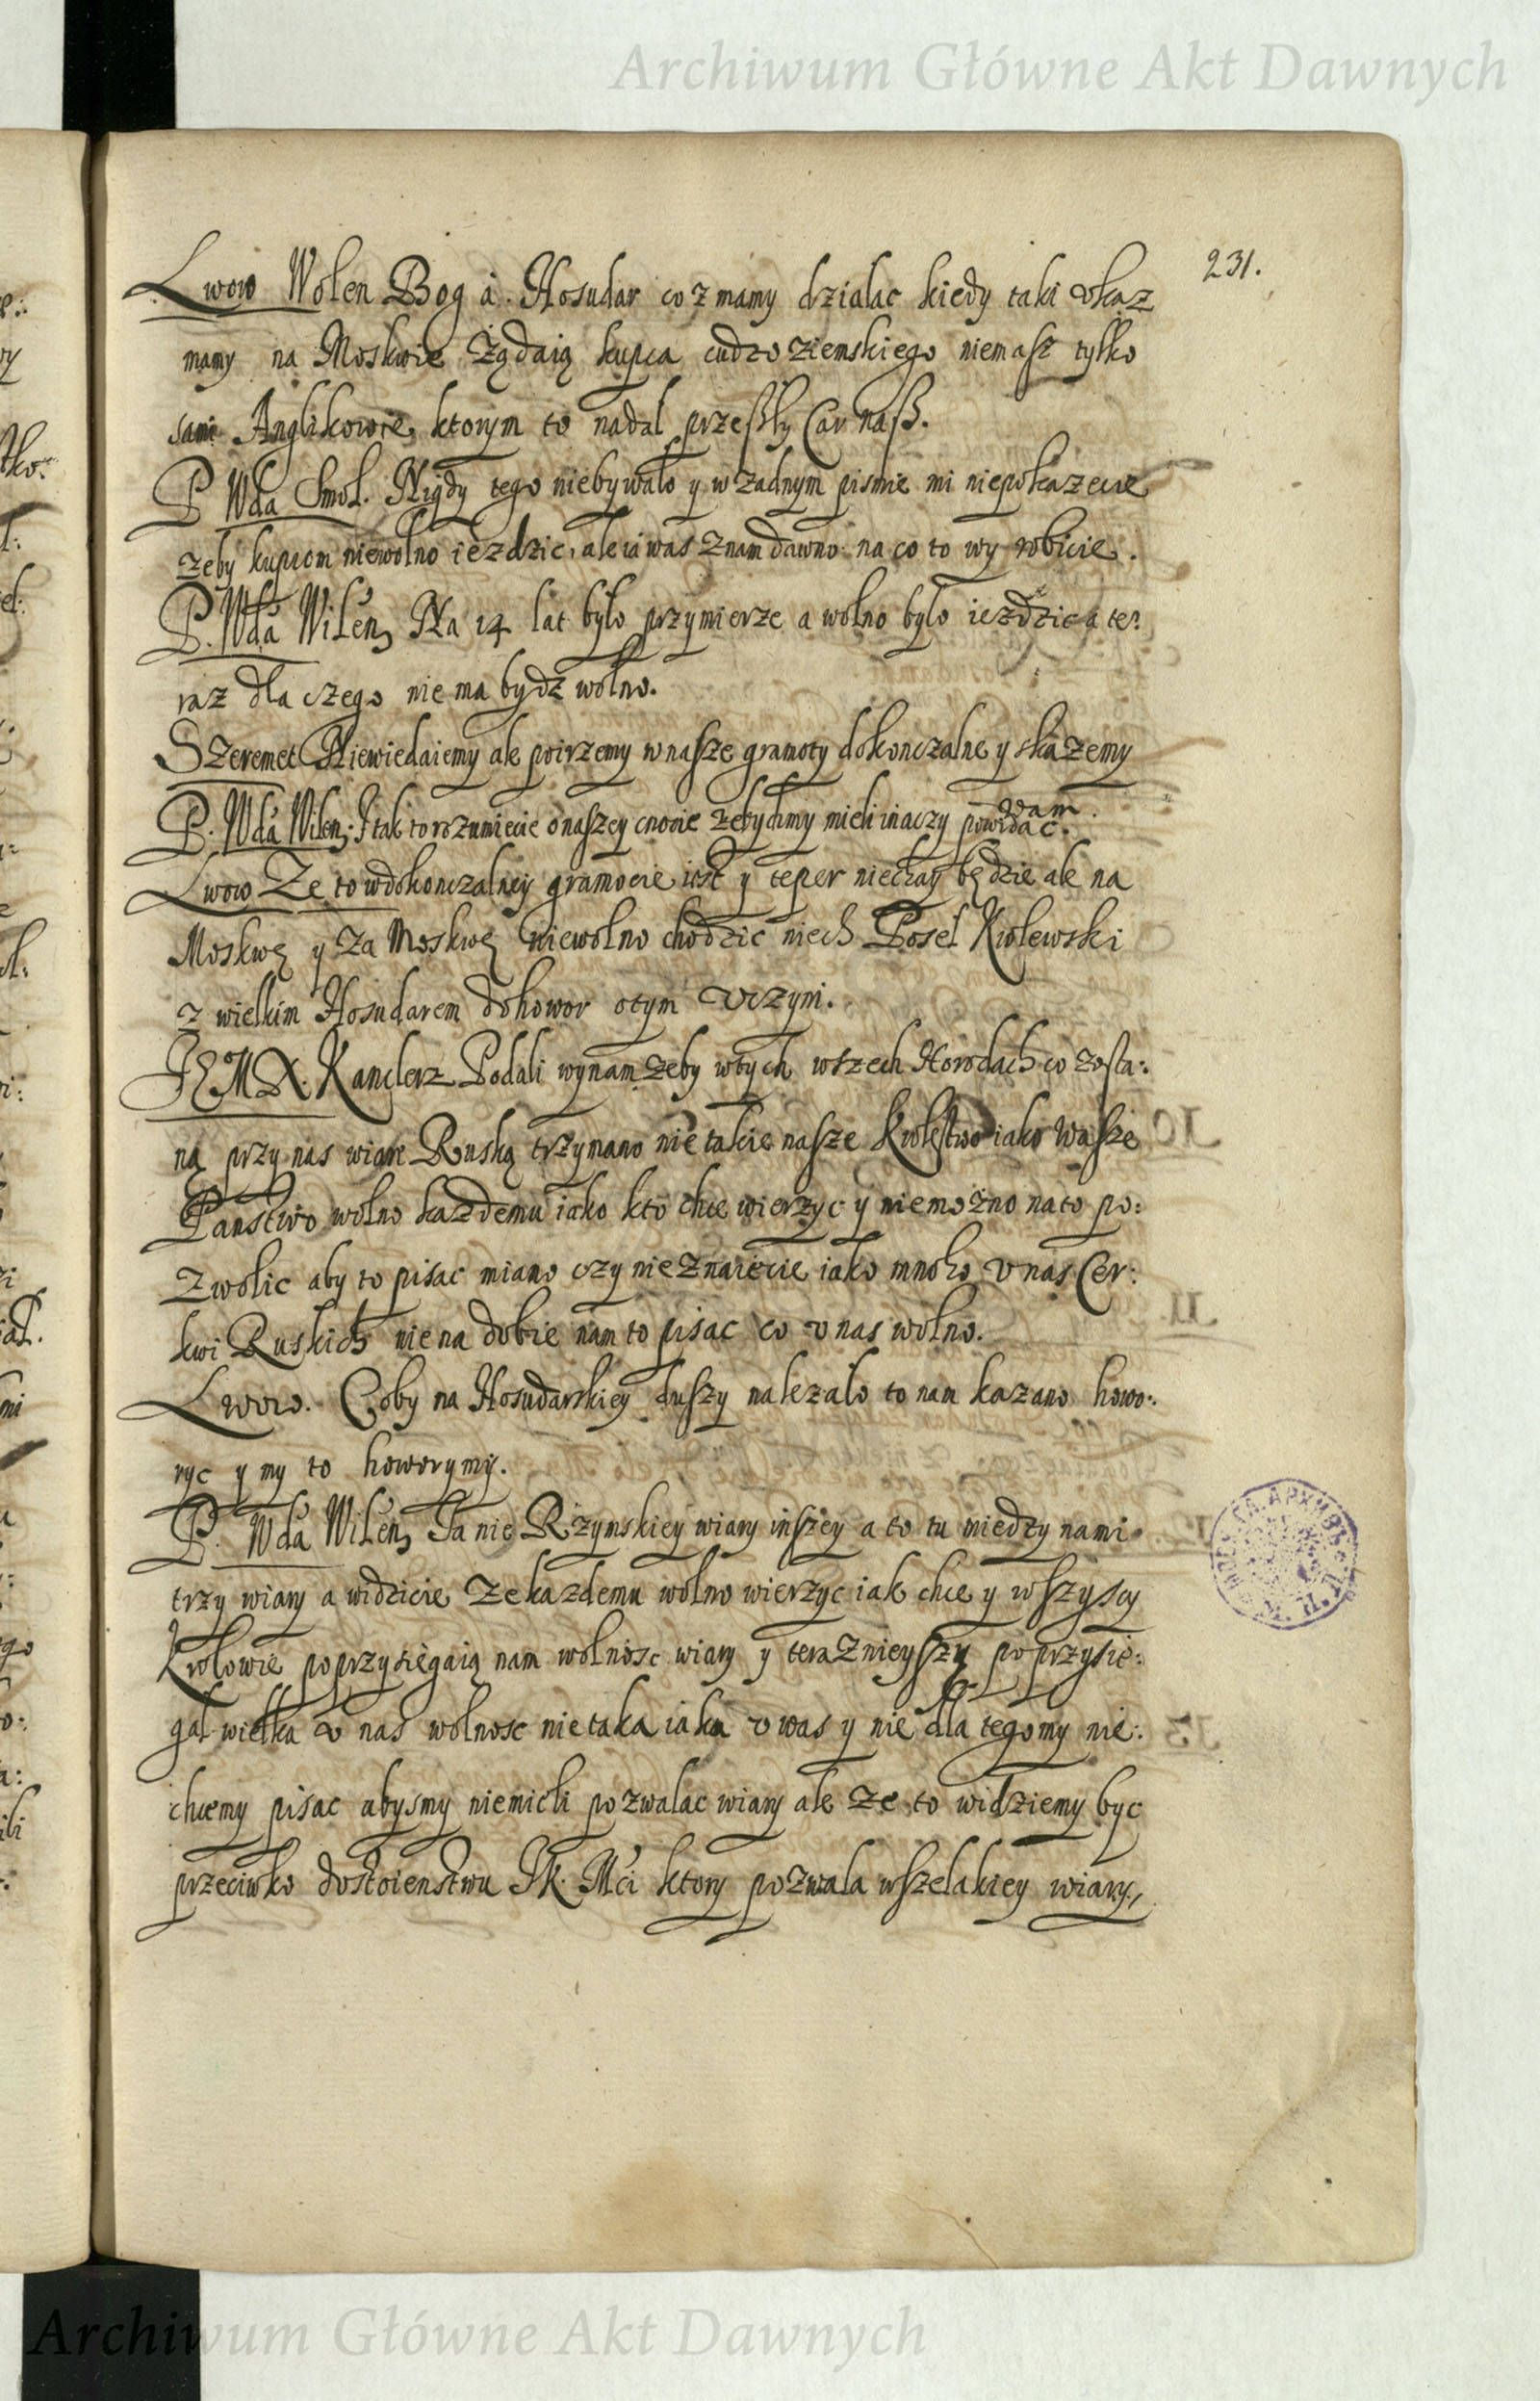 Archiwum Główne Akt Dawnych
231.
Lwow Wolen Bog a Hosudar co z mamy dzialac kiedy taki vkaz
mamy na Moskwie Żądaią kupca cudzoziemskiego niemasz tylko
sami Anglikowie, ktorym to nadal przeszły Car nasz.
P Wda Smol. Nigdy tego niebywało y w zadnym pismie mi niepokazecie
zeby kupcom niewolno iezdzic, ale ia was znam dawno na co to wy robicie.
P. Wda Wilen, Na 14 lat było przymierze a wolno było iezdzic a te:
raz dla czego nie ma bydz wolno.
Szeremet Niewiedaiemy ale poirzemy w nasze gramoty dokonczalne y skazemy
P. Wda Wilen, I tak to rozumiecie o naszey cnocie zebychmy mieli inaczy powidac wam.
Lwow Ze to w dokonczalney gramocie iest y teper niechay będzie ale na
Moskwę y za Moskwę niewolno chodzic niech Poseł Krolewski
z wielkim Hosudarem dohowor otym vczyni.
JE MX. Kanclerz Podali wynam zeby w tych wszech Horodach co zosta:
ną przy nas wiare Ruską trzymano nie takie nasze Krolestwo iako Wasze
Panstwo wolno kazdemu iako kto chce wierzyc y niemożno na to po:
zwolic aby to pisac miano czy nieznaiecie iako mnoho v nas Cer:
kwi Ruskich nie na dobie nam to pisac co v nas wolno.
Lwow. Coby na Hosudarskiey duszy nalezalo to nam kazano howo:
ryc y my to howorymy.
P. Wda Wilen, Ja nie Rzymskiey wiary inszey a to tu miedzy nami
trzy wiary a widzicie ze kazdemu wolno wierzyc iak chce y wszyscy
Krolowie poprzysięgaią nam wolnosc wiary y teraznieyszy poprzysię:
gał wielka v nas wolnosc nie taka iaka v was y nie dla tego my nie:
chcemy pisac abysmy niemieli pozwalac wiary ale ze to widziemy byc
przeciwko dostoienstwu JK. Mci ktory pozwala wszelakiey wiary,
Archiwum Główne Akt Dawnych